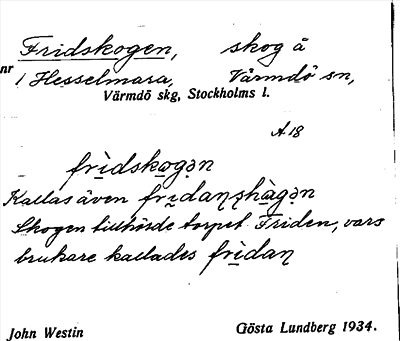 Fridskogen, skog å
nr 1 Hesselmara, Värmdö sn,
Värmdö skg, Stockholms l.
A 18
frìdskωgən
Kallas även
Skogen tillhörde torpet Friden, vars
brukare kallades frìdaɳ
John Westin Gösta Lundberg 1934.